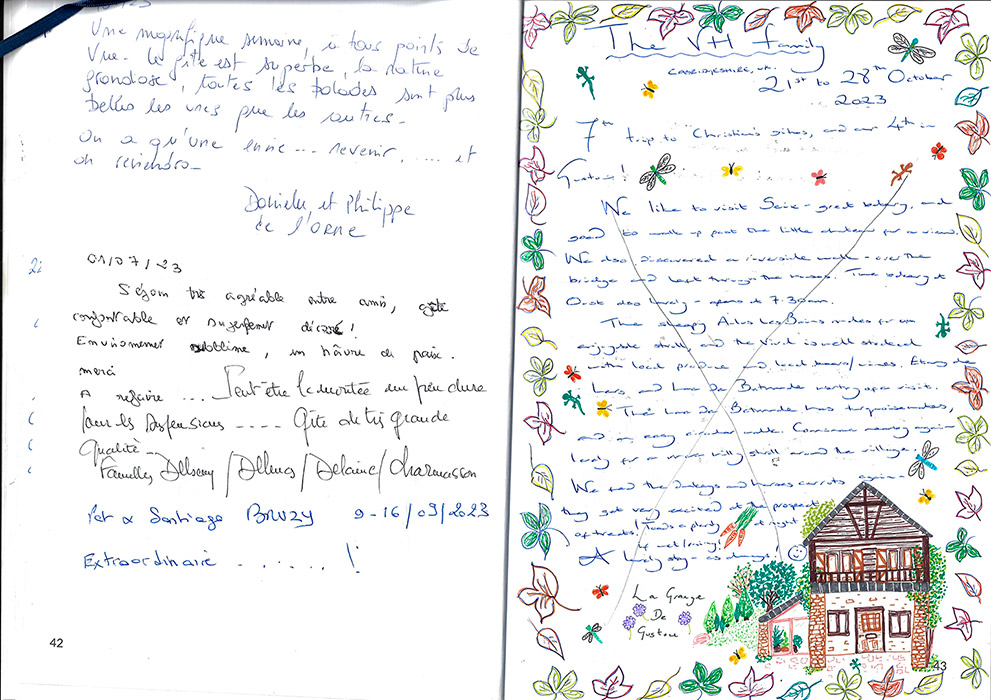 Une magnifique semaine, à tous points de
Vue. Le gîte est superbe, la nature
grandiose, toutes les balades sont plus
belles les unes que les autres.
On a qu'une envie ... revenir, .... et
on reviendra.
Danielle et Philippe
de l'Orne
01/07/23
Séjour très agréable entre amis, gîte
confortable et superbement décoré!
Environnement sublime, un hâvre de paix.
merci
A refaire .... Peut-être la montée un peu dure
pour les suspensions .... Gîte de très grande
Qualité
Familles / Delmas / Delaine / Charmasson
Pat & Santiago BRUZY 9-16/09/2023
Extraordinaire ....... !
42
The VH family
CAMBRIDGESHIRE, UK.
21st to 28th October
2023
7th trip to Christian's gites, and our 4th in
Gustou!
We like to visit Seix - great bakery, and
good to walk up past the little chateau for a view.
We also discovered a riverside walk - over the
bridge and left through the houses. The bakery at
Oust also lovely - opens at 7.30am.
The sleepy Aulus Les Bains makes for an
enjoyable stroll and the Vival is well stocked
with local produce and local beers/wines. Etang de
Lers, and Lac De Bethmale worthy of a visit.
The Lac De Bethmale has turquoise waters,
and an easy circular walk. Cominac nearby again
lovely for a more hilly stroll around the village.
We feed the donkeys and horses carrots again -
they get very excited at the prospect
of treats! Toads a plenty at night
if wet/rainy!
A lovely stay - as always!
La Grange
De
Gustou
43